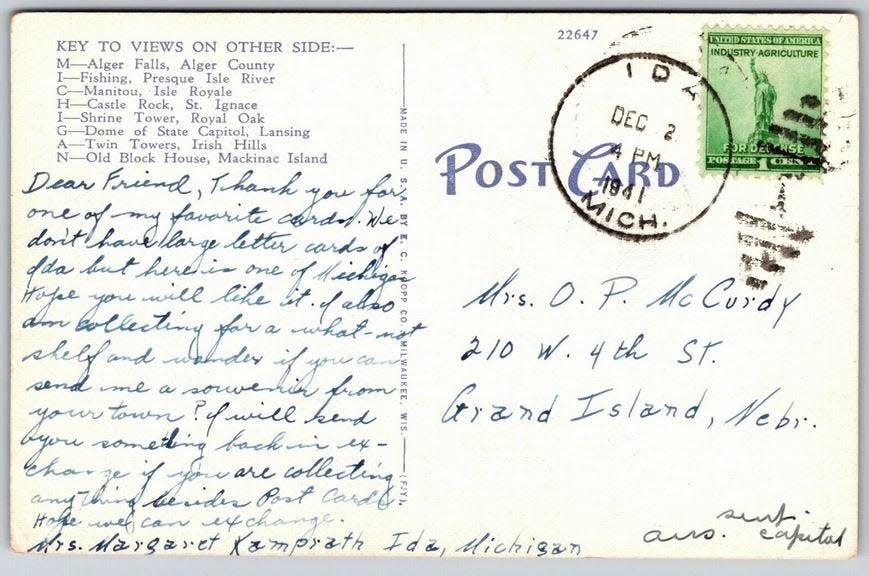 KEY TO VIEWS ON OTHER SIDE:—
M—Alger Falls, Alger County
I—Fishing, Presque Isle River
C—Manitou, Isle Royale
H—Castle Rock, St. Ignace
I—Shrine Tower, Royal Oak
G—Dome of State Capitol, Lansing
A—Twin Towers, Irish Hills
N—Old Block House, Mackinac Island
Dear Friend, Thank you for
one of my favorite cards. We
don't have large letter cards of
Ida but here is one of Michigan
Hope you will like it. I also
am collecting for a what-not
shelf and wonder if you can
send me a souvenir from
your town? I will send
you something back in ex-
change if you are collecting
anything besides Post Cards
Hope we can exchange.
Mrs. Margaret Kamprath Ida, Michigan
MADE IN U. S. A. BY E. C. KROPP CO. MILWAUKEE, WIS.
(FJY)
22647
POST CARD
IDA
DEC 2
4 PM
1941
MICH.
UNITED STATES OF AMERICA
INDUSTRY AGRICULTURE
FOR DEFENSE
POSTAGE 1 CENT
Mrs. O. P. McCurdy
210 W. 4th St.
Grand Island, Nebr.
sent
ans. capitol